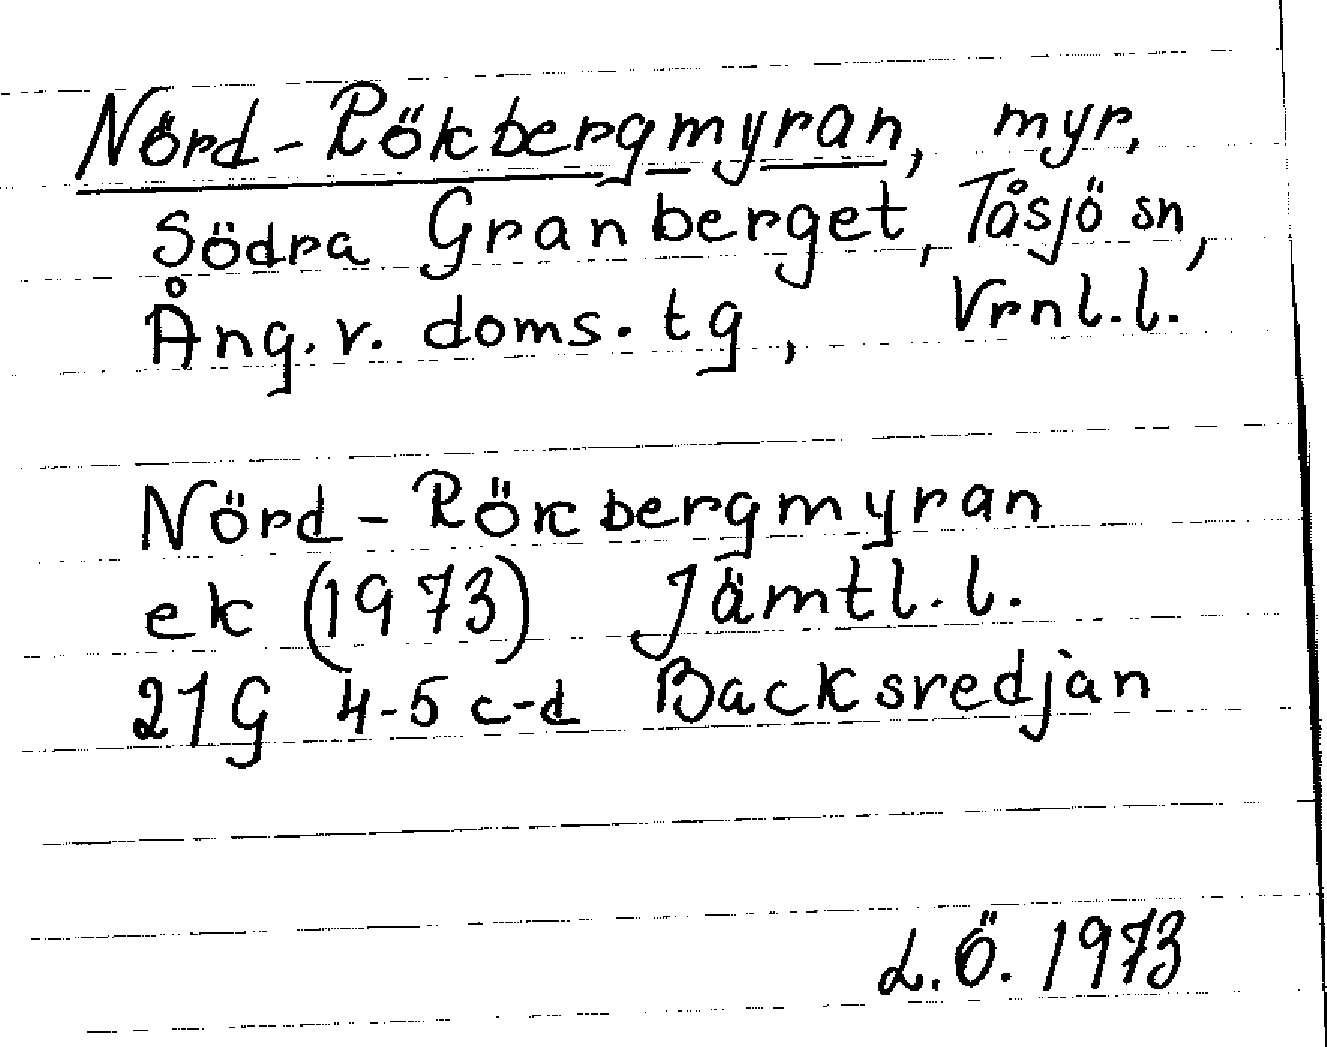 Nörd-Rökbergmyran, myr,
Södra Granberget, Tåsjö sn,
Ång. v. doms. tg, Vrnl.l.
Nörd-Rökbergmyran
ek (1973) Jämtl.l.
21G 4-5 c-d Backsredjan
L.Ö. 1973